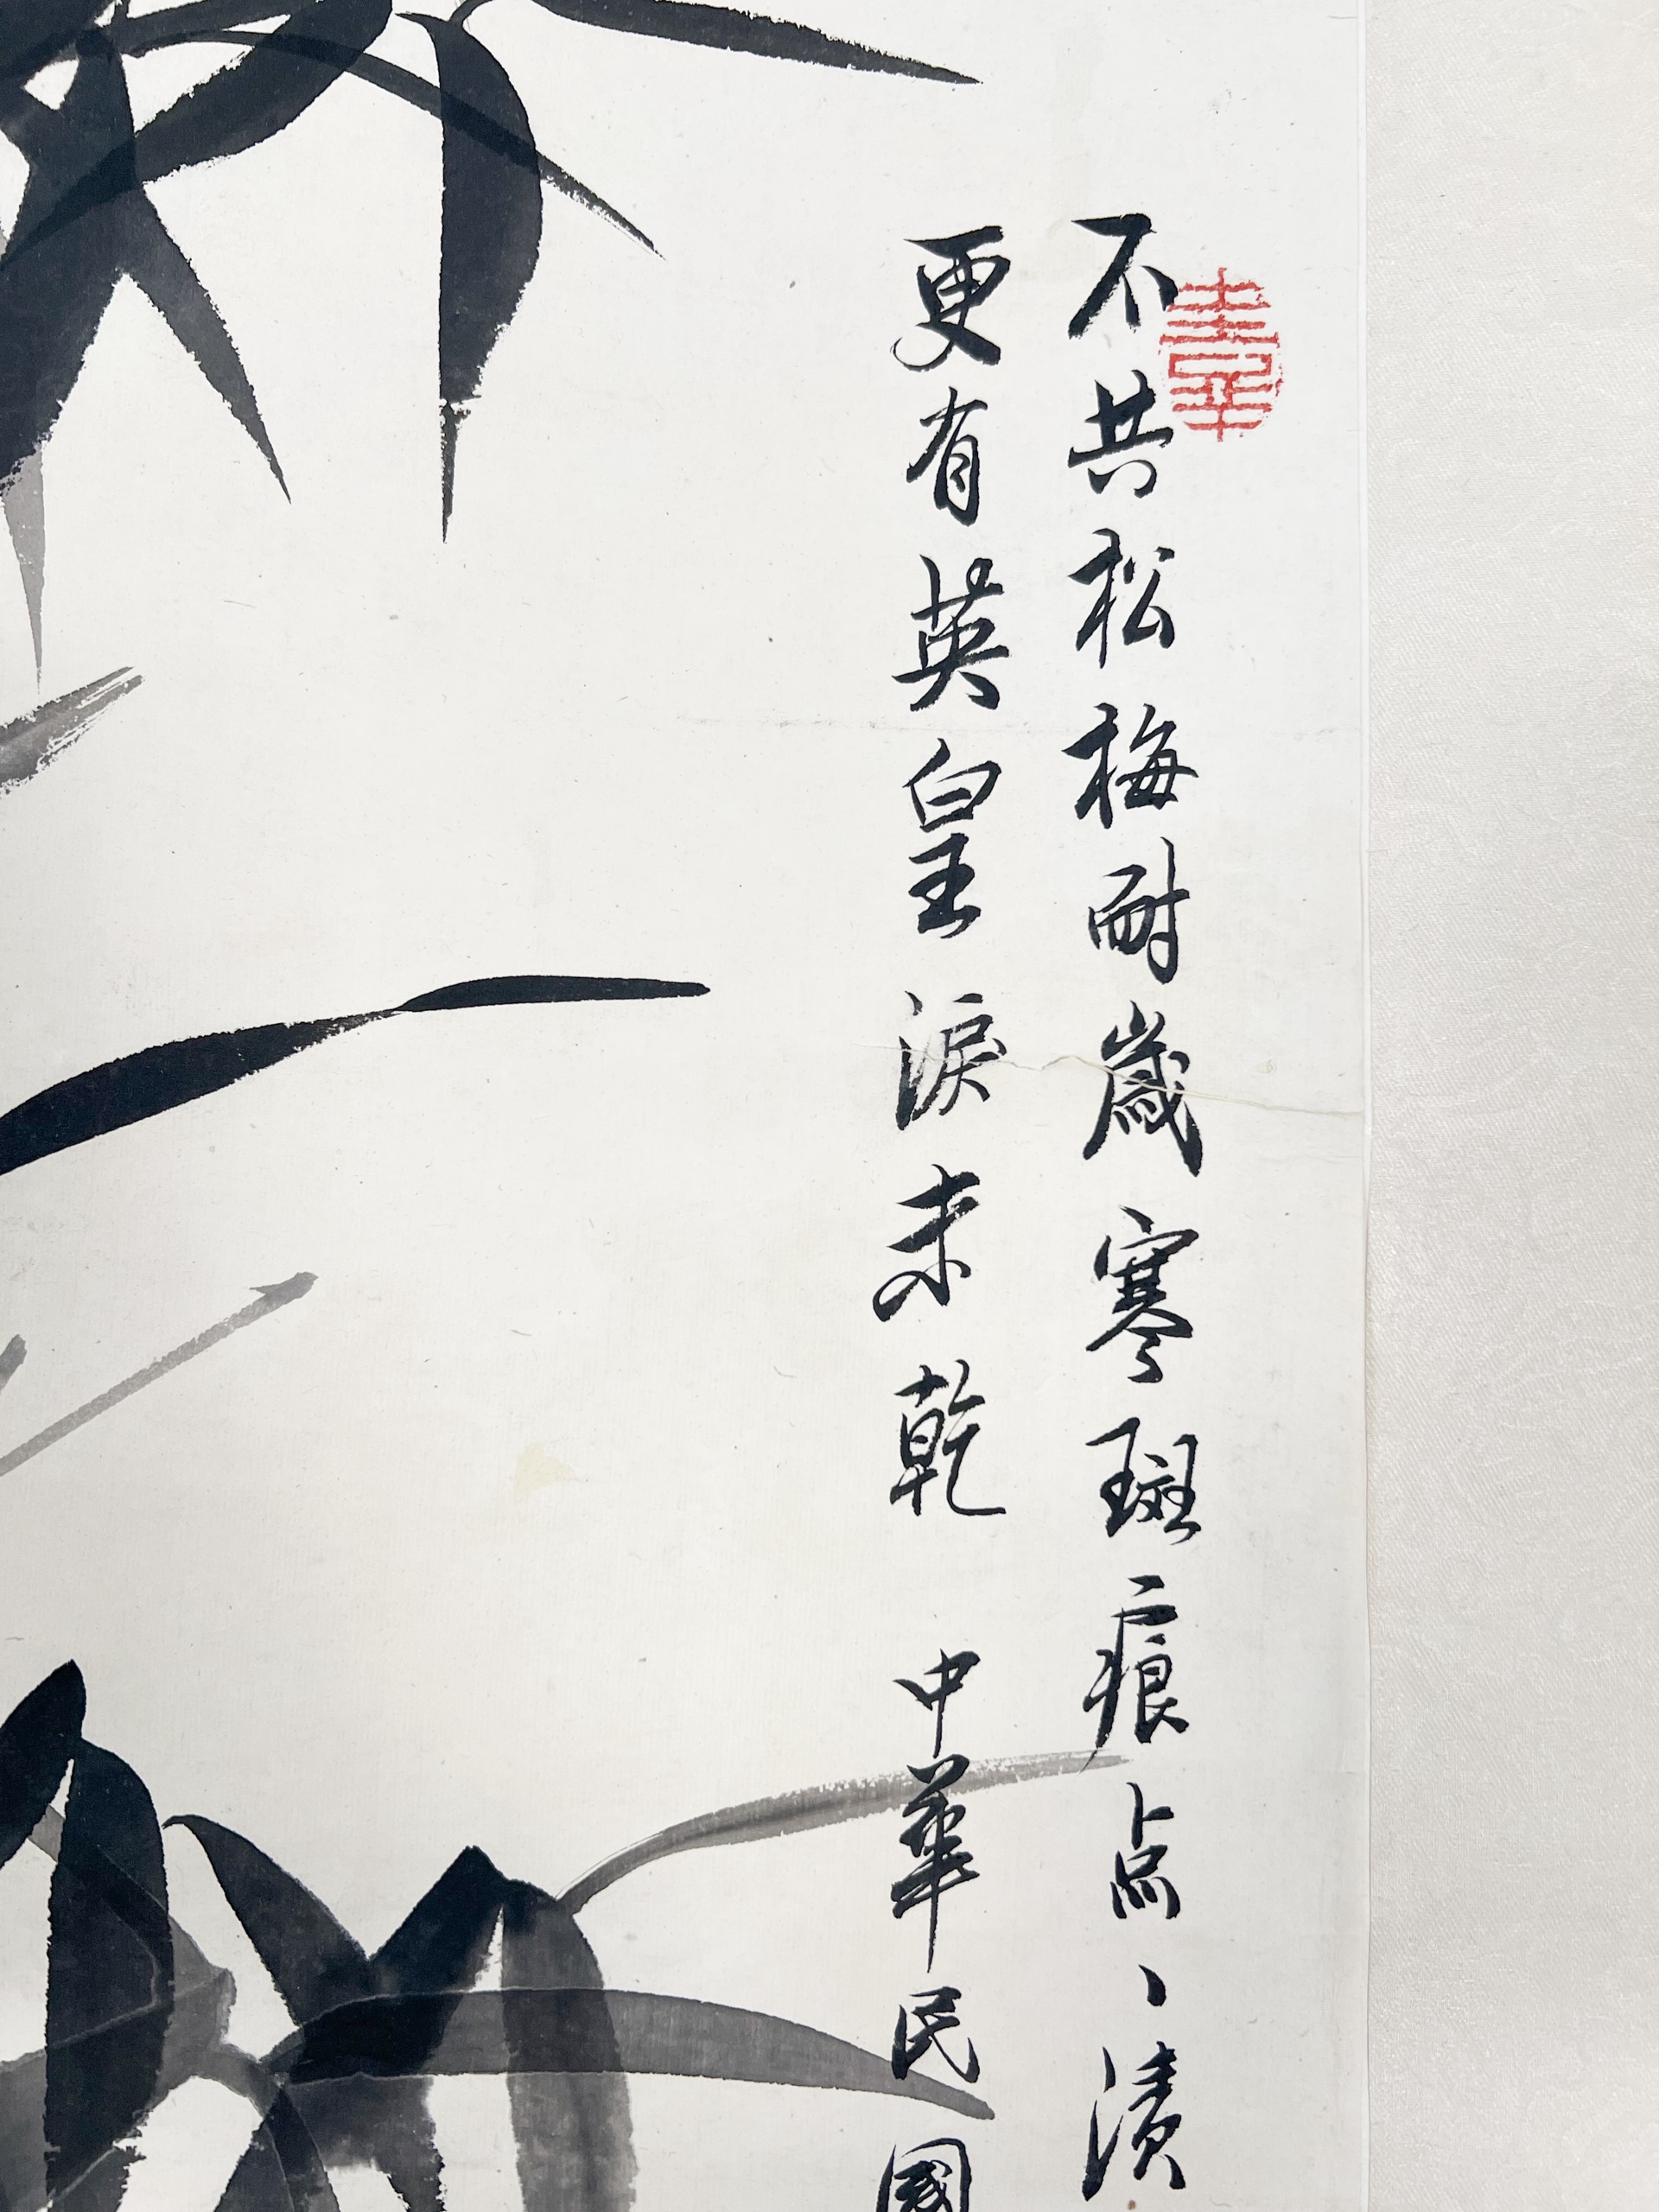 不共松梅耐歲寒斑痕点丶漬
更有英皇淚未乾 中華民國